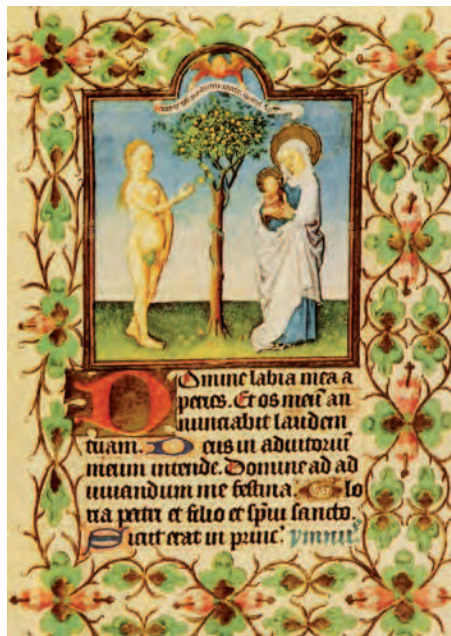 Domine labia mea a
peries. Et os meū an
nunciabit laudem
tuam. Deus in adiutoriū
meum intende. Domine ad ad
iuuandum me festina. Glo
ria patri et filio et spūi sancto.
Sicut erat in princ'.